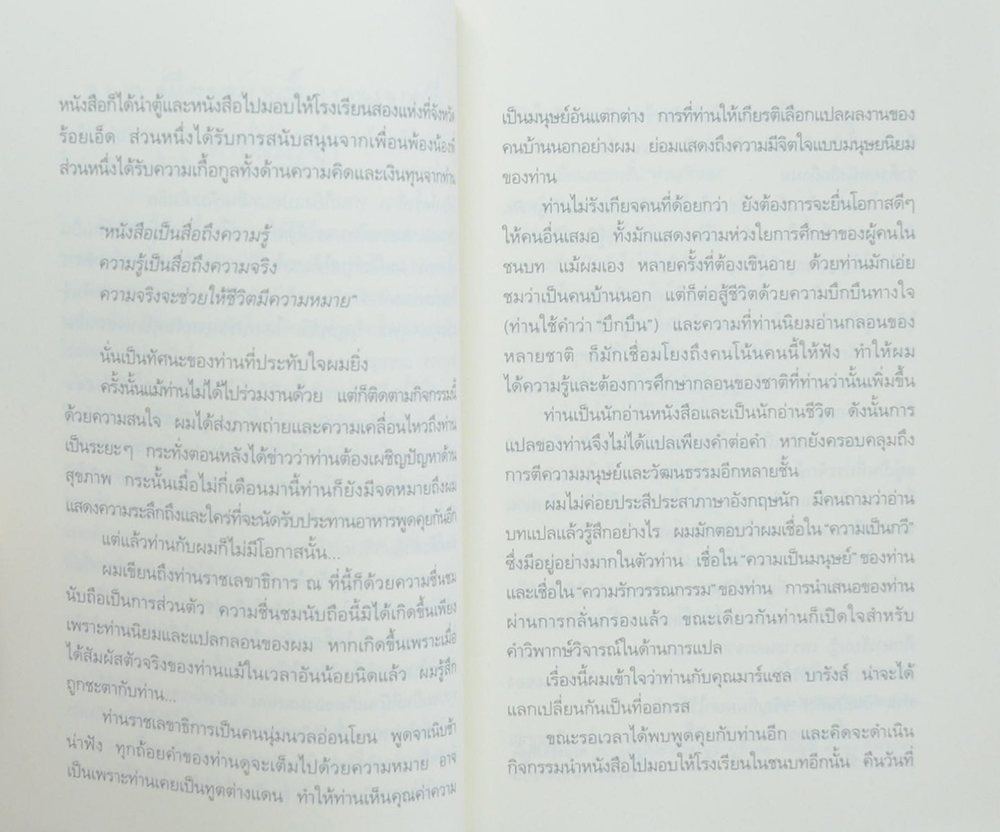 หนังสือก็ได้นำตู้และหนังสือไปมอบให้โรงเรียนสองแห่งที่จังหวัด
ร้อยเอ็ด ส่วนหนึ่งได้รับการสนับสนุนจากเพื่อนพ้องน้องพี่
ส่วนหนึ่งได้รับความเกื้อกูลทั้งด้านความคิดและเงินทุนจากท่าน
"หนังสือเป็นสื่อถึงความรู้
ความรู้เป็นสื่อถึงความจริง
ความจริงจะช่วยให้ชีวิตมีความหมาย"
นั่นเป็นทัศนะของท่านที่ประทับใจผมยิ่ง
ครั้งนั้นแม้ท่านไม่ได้ไปร่วมงานด้วย แต่ก็ติดตามกิจกรรมนี้
ด้วยความสนใจ ผมได้ส่งภาพถ่ายและความเคลื่อนไหวถึงท่าน
เป็นระยะๆ กระทั่งตอนหลังได้ข่าวว่าท่านต้องเผชิญปัญหาด้าน
สุขภาพ กระนั้นเมื่อไม่กี่เดือนมานี้ท่านก็ยังมีจดหมายถึงผม
แสดงความระลึกถึงและใคร่ที่จะนัดรับประทานอาหารพูดคุยกันอีก
แต่แล้วท่านกับผมก็ไม่มีโอกาสนั้น...
ผมเขียนถึงท่านราชเลขาธิการ ณ ที่นี้ก็ด้วยความชื่นชม
นับถือเป็นการส่วนตัว ความชื่นชมนับถือนี้มิได้เกิดขึ้นเพียง
เพราะท่านนิยมและแปลกลอนของผม หากเกิดขึ้นเพราะเมื่อ
ได้สัมผัสตัวจริงของท่านแม้ในเวลาอันน้อยนิดแล้ว ผมรู้สึก
ถูกชะตากับท่าน...
ท่านราชเลขาธิการเป็นคนนุ่มนวลอ่อนโยน พูดจาเนิบช้า
น่าฟัง ทุกถ้อยคำของท่านดูจะเต็มไปด้วยความหมาย อาจ
เป็นเพราะท่านเคยเป็นทูตต่างแดน ทำให้ท่านเห็นคุณค่าความ
เป็นมนุษย์อันแตกต่าง การที่ท่านให้เกียรติเลือกแปลผลงานของ
คนบ้านนอกอย่างผม ย่อมแสดงถึงความมีจิตใจแบบมนุษยนิยม
ของท่าน
ท่านไม่รังเกียจคนที่ด้อยกว่า ยังต้องการจะยื่นโอกาสดีๆ
ให้คนอื่นเสมอ ทั้งมักแสดงความห่วงใยการศึกษาของผู้คนใน
ชนบท แม้ผมเอง หลายครั้งที่ต้องเขินอาย ด้วยท่านมักเอ่ย
ชมว่าเป็นคนบ้านนอก แต่ก็ต่อสู้ชีวิตด้วยความบึกบึนทางใจ
(ท่านใช้คำว่า "บึกบึน") และความที่ท่านนิยมอ่านกลอนของ
หลายชาติ ก็มักเชื่อมโยงถึงคนโน้นคนนี้ให้ฟัง ทำให้ผม
ได้ความรู้และต้องการศึกษากลอนของชาติที่ท่านว่านั้นเพิ่มขึ้น
ท่านเป็นนักอ่านหนังสือและเป็นนักอ่านชีวิต ดังนั้นการ
แปลของท่านจึงไม่ได้แปลเพียงคำต่อคำ หากยังครอบคลุมถึง
การตีความมนุษย์และวัฒนธรรมอีกหลายชั้น
ผมไม่ค่อยประสีประสาภาษาอังกฤษนัก มีคนถามว่าอ่าน
บทแปลแล้วรู้สึกอย่างไร ผมมักตอบว่าผมเชื่อใน "ความเป็นกวี"
ซึ่งมีอยู่อย่างมากในตัวท่าน เชื่อใน "ความเป็นมนุษย์" ของท่าน
และเชื่อใน "ความรักวรรณกรรม" ของท่าน การนำเสนอของท่าน
ผ่านการกลั่นกรองแล้ว ขณะเดียวกันท่านก็เปิดใจสำหรับ
คำวิพากษ์วิจารณ์ในด้านการแปล
เรื่องนี้ผมเข้าใจว่าท่านกับคุณมาร์แซล บารังส์ น่าจะได้
แลกเปลี่ยนกันเป็นที่ออกรส
ขณะรอเวลาได้พบพูดคุยกับท่านอีก และคิดจะดำเนิน
กิจกรรมนำหนังสือไปมอบให้โรงเรียนในชนบทอีกนั้น คืนวันที่